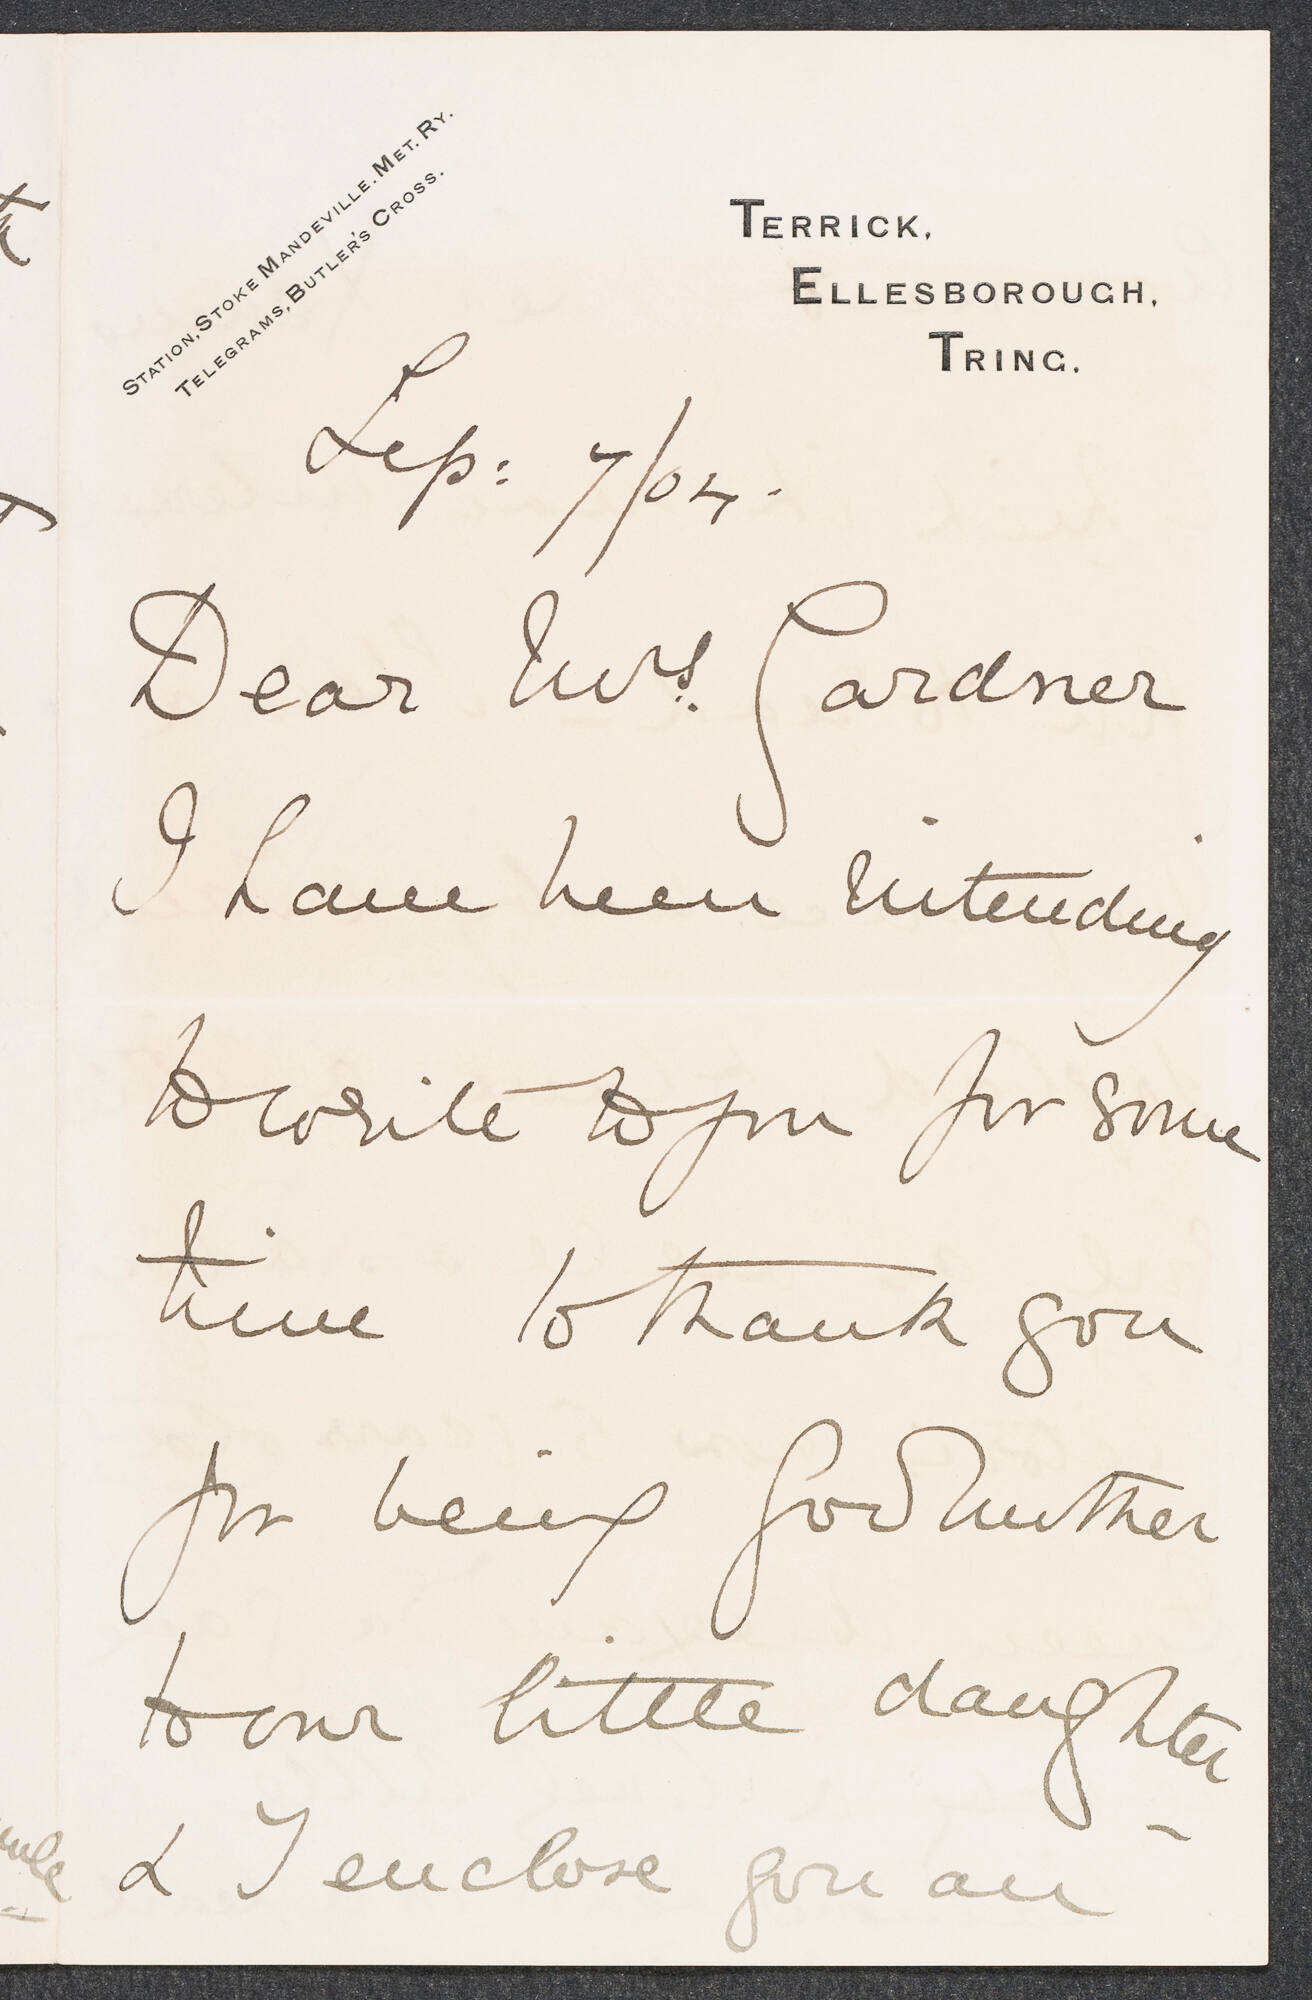 Station, Stoke Mandeville. Met. Ry.
Telegrams, Butler's Cross.
Terrick,
Ellesborough,
Tring.
Sep: 7/04.
Dear Mrs. Gardner
I have been intending
to write to you for some
time to thank you
for being Godmother
to our little daughter
& I enclose you an